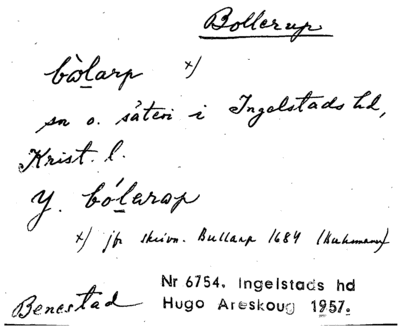 Bollerup
bòlarp x)
sn o. säteri i Ingelstads hd,
Krist. l.
Y. bólarap
x) jfr skrivn. Bullarp 1684 (Kuhmann)
Nr 6754. Ingelstads hd
Benestad Hugo Areskoug 1957.